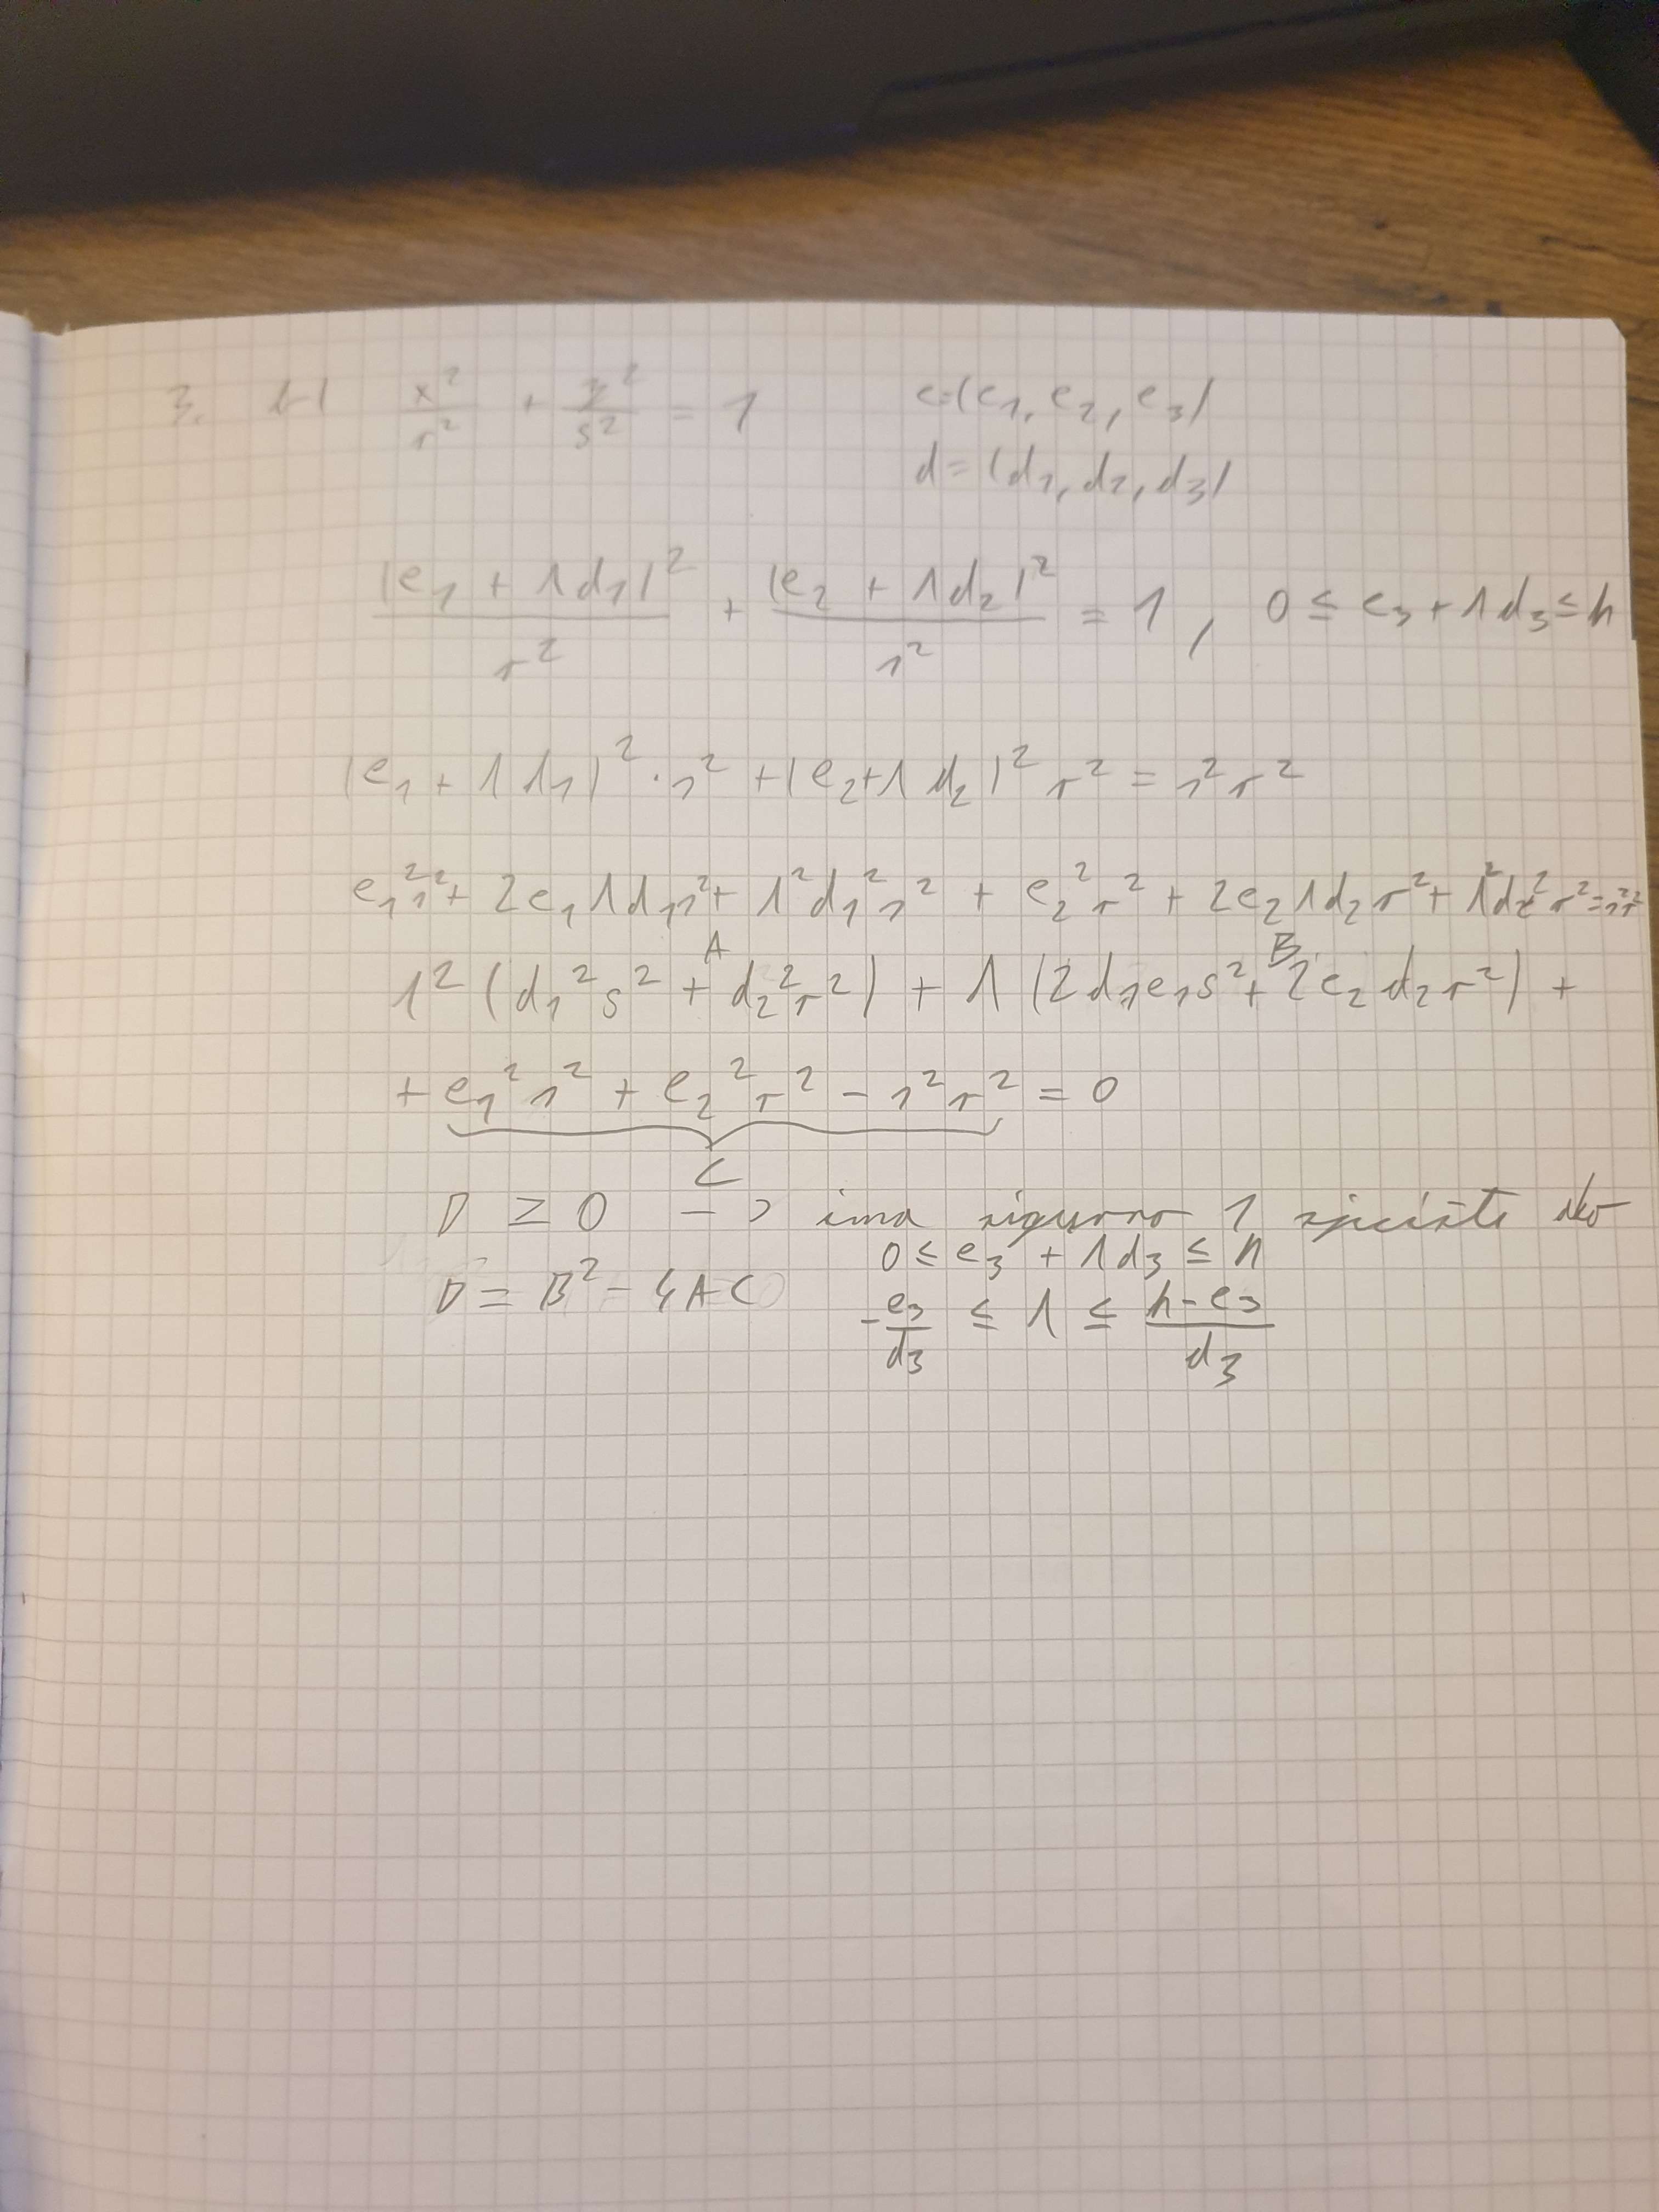 3. b) x²/r² + y²/s² = 1 e=(e₁, e₂, e₃)
d=(d₁, d₂, d₃)
(e₁ + λd₁)²/r² + (e₂ + λd₂)²/s² = 1, 0 ≤ e₃ + λd₃ ≤ h
(e₁ + λd₁)² · s² + (e₂+λd₂)² r² = s²r²
e₁²s² + 2e₁λd₁s² + λ²d₁²s² + e₂²r² + 2e₂λd₂r² + λ²d₂²r² = s²r²
A B
λ² (d₁²s² + d₂²r²) + λ (2d₁e₁s² + 2e₂d₂r²) +
+ e₁²s² + e₂²r² - s²r² = 0
C
D ≥ 0 -> ima sigurno 1 sjecište ako
0 ≤ e₃ + λd₃ ≤ h
D = B² - 4AC -e₃/d₃ ≤ λ ≤ (h-e₃)/d₃